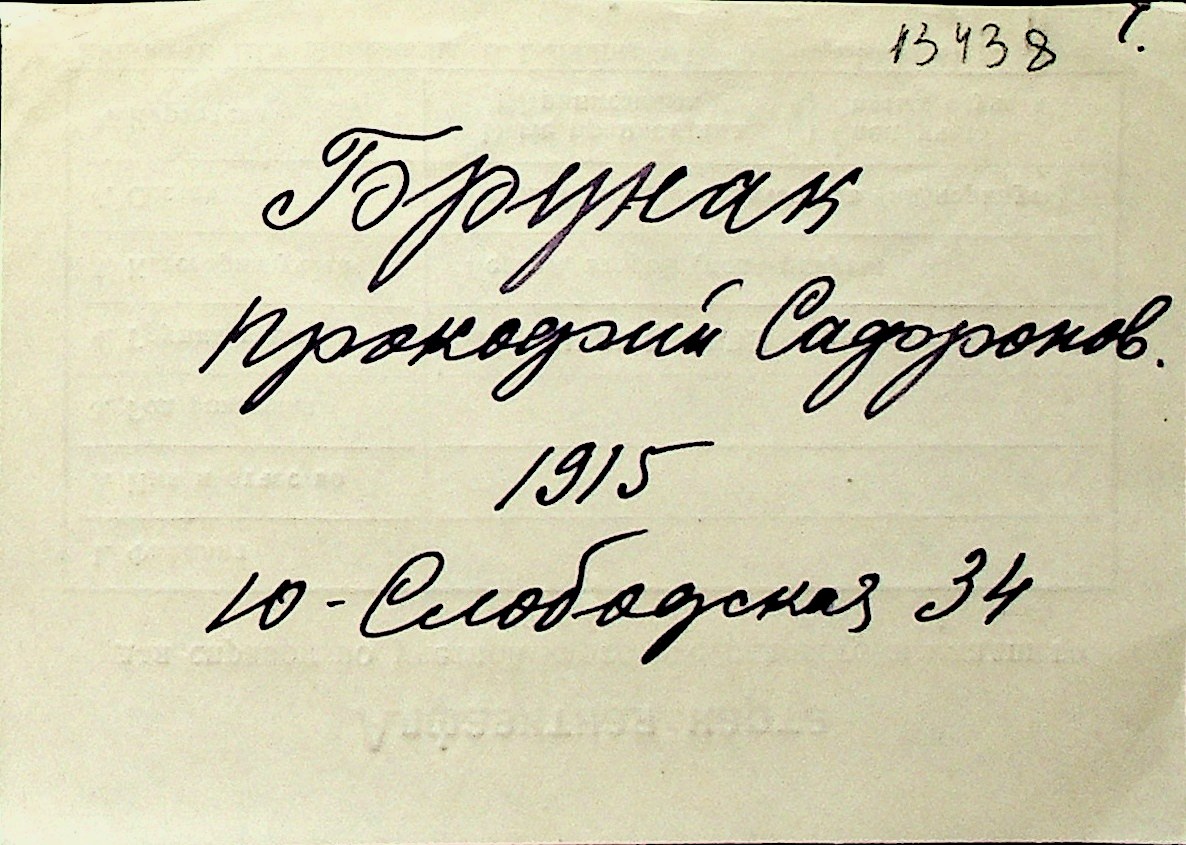 13438 Г.
Брунак
Прокофий Сафронов.
1915
Ю-Слободская 34